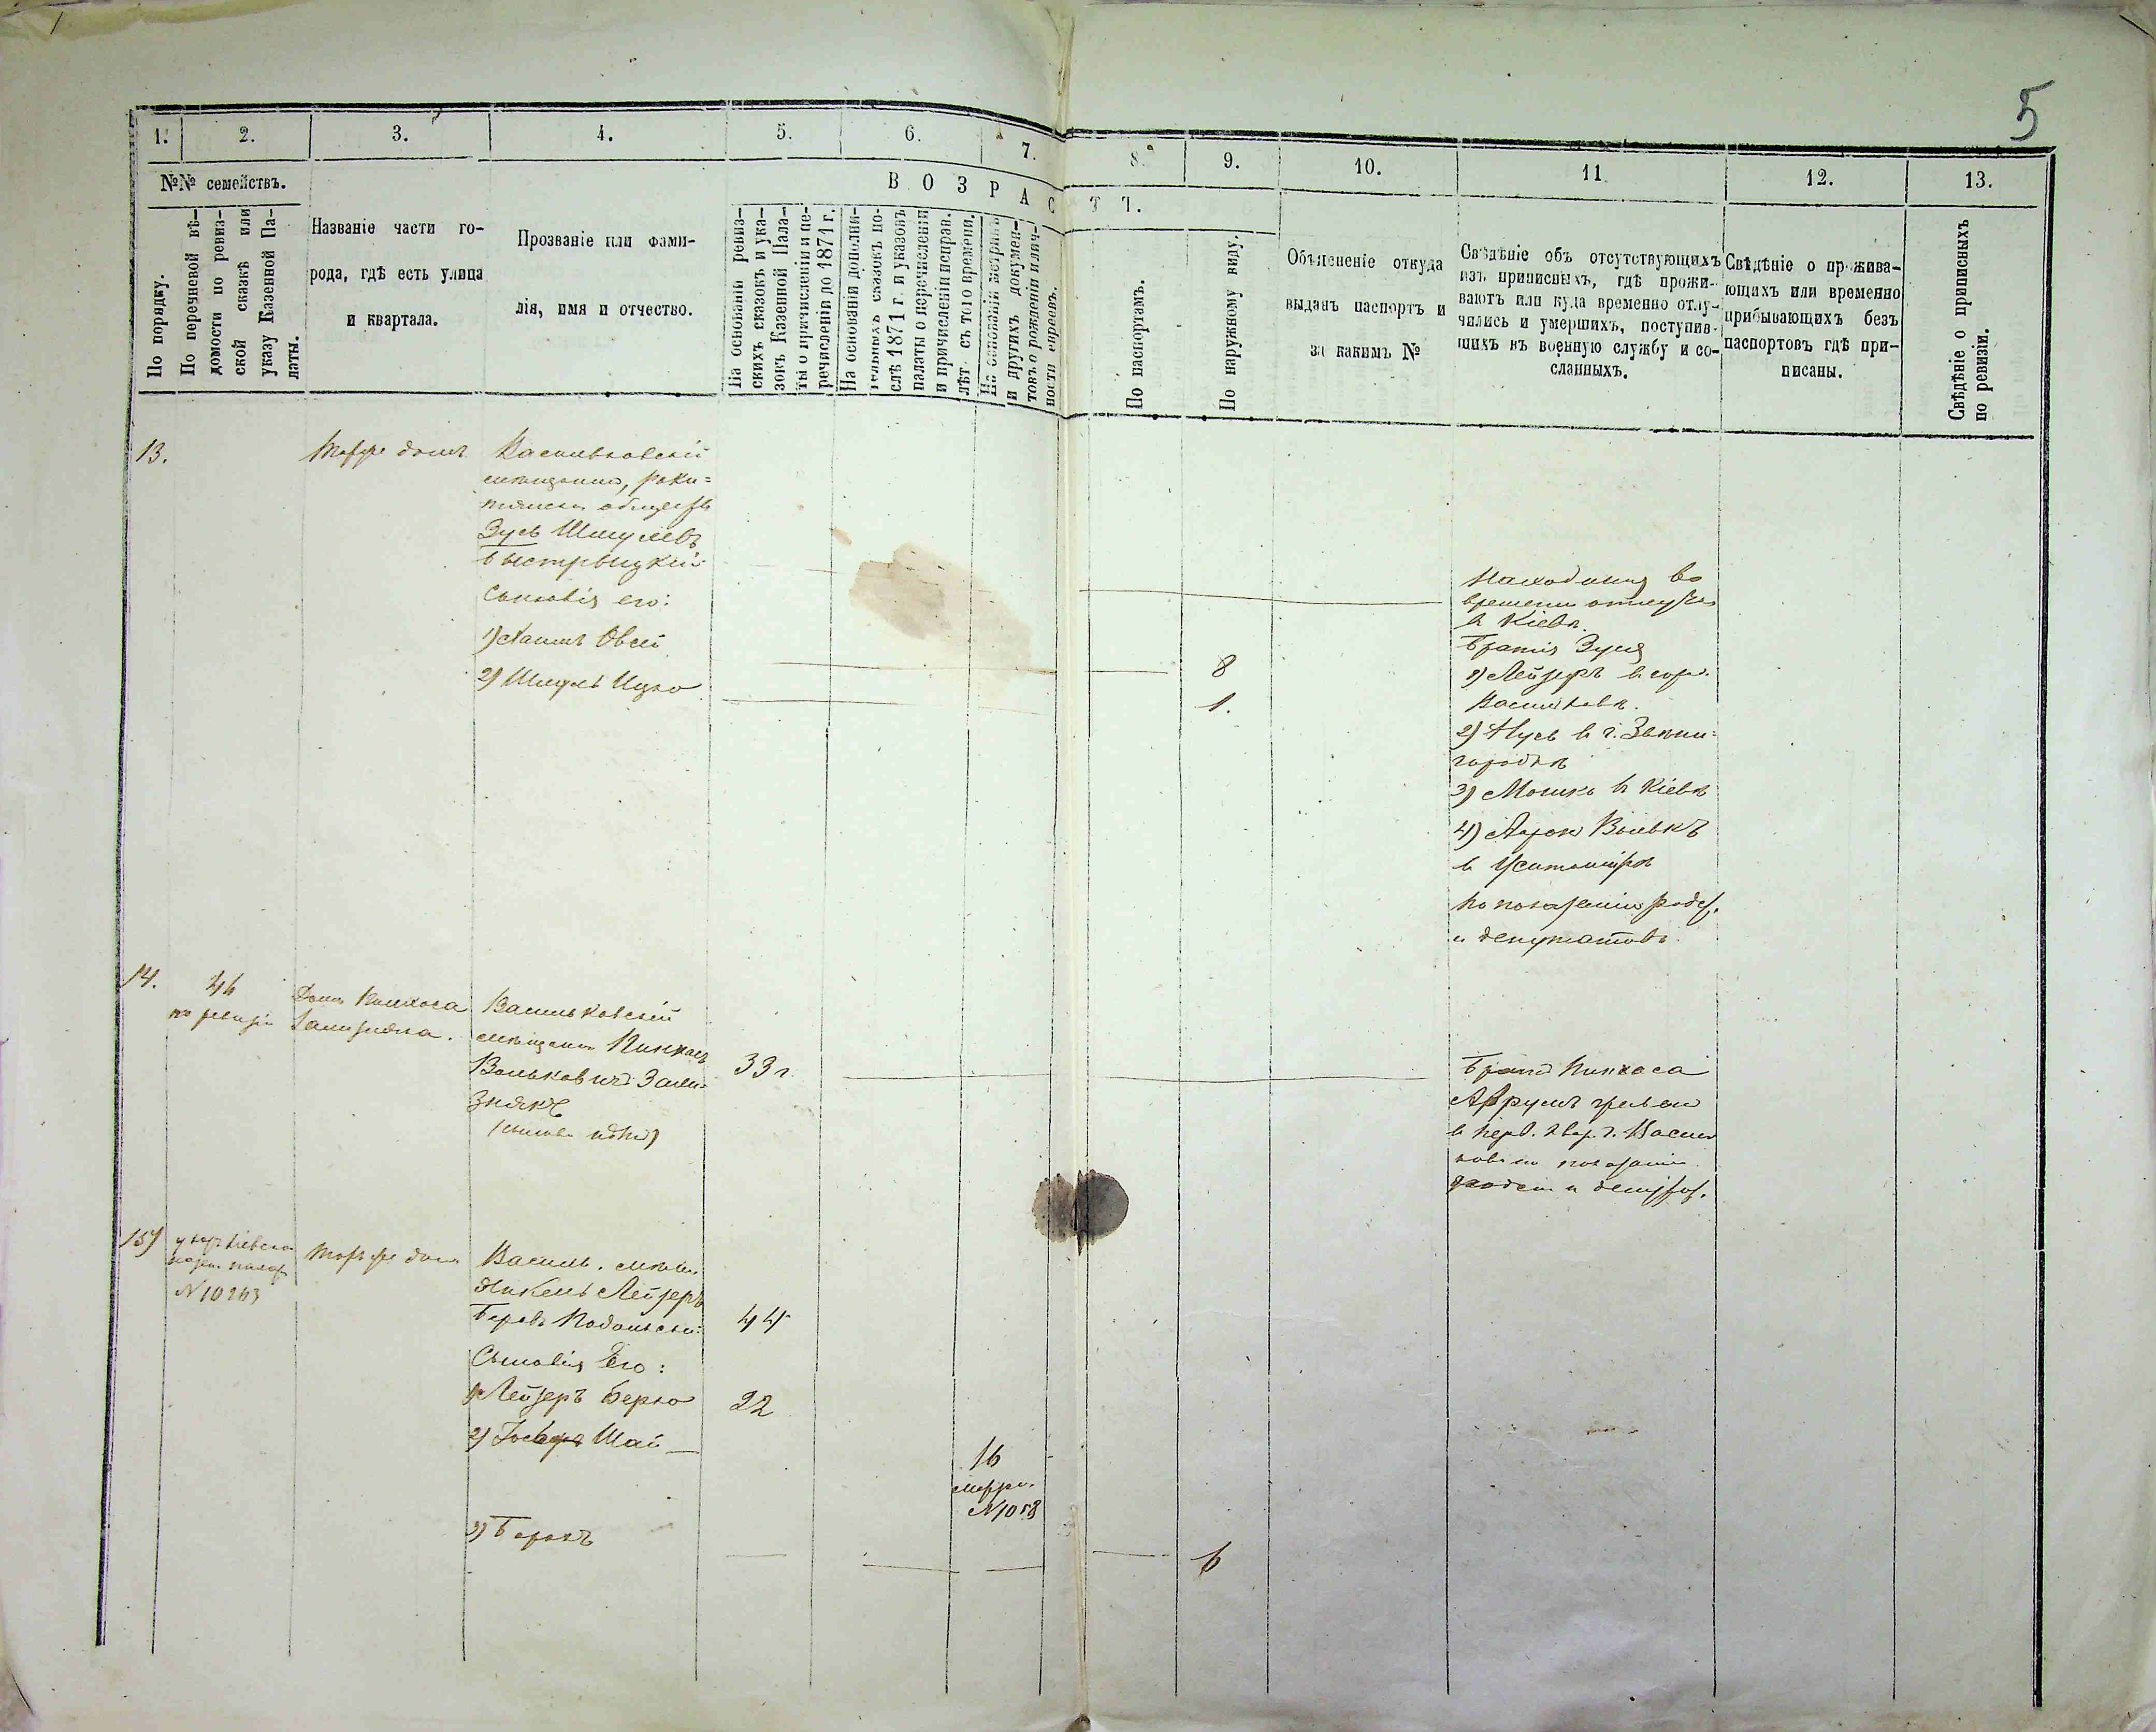 5
1.
2.
3.
4.
5.
6.
7.
8.
9.
10.
11
12.
13.
№№ семействъ.
В О З Р А С Т Ъ.
По порядку.
По перечневой вѣ-
домости по ревиз-
ской сказкѣ или
указу Казенной Па-
латы.
Названіе части го-
рода, гдѣ есть улица
и квартала.
Прозваніе или фами-
лія, имя и отчество.
На основаніи ревиз-
скихъ сказокъ и ука-
зокъ Казенной Пала-
ты о причисленіи и пе-
речисленіи до 1871 г.
На основаніи дополни-
тельныхъ сказокъ по-
слѣ 1871 г. и указовъ
палаты о перечисленіи
и причисленіи исправ.
лѣт съ того времени.
На основаніи метрикъ
и другихъ докумен-
товъ о рожденіи и лич-
ности евреевъ.
По паспортамъ.
По наружному виду.
Объясненіе откуда
выданъ паспортъ и
за какимъ №
Свѣдѣніе объ отсутствующихъ
изъ приписныхъ, гдѣ прожи-
ваютъ или куда временно отлу-
чились и умершихъ, поступив-
шихъ въ военную службу и со-
сланныхъ.
Свѣдѣніе о прожива-
ющихъ или временно
прибывающихъ безъ
паспортовъ гдѣ при-
писаны.
Свѣдѣніе о приписныхъ
по ревизіи.
13.
домъ
Васильковскій
мѣщанинъ, раки-
Зусь Шмулевъ
Быстрыцкій
Сыновія его:
1) Овсій
2) Шмуль Ицко
8
1.
Находится во
в Кіевѣ.
Братія Зуся
1) Лейзеръ в гор.
Васильковѣ.
2) Нусь в г. Звени-
городкѣ
3) Мошко в Кіевѣ
4) Арон Волькъ
в Житомірѣ
по показанію родс.
и депутатовъ
14.
46
по ревизіи
Домъ Пинхоса
Зализняка.
Васильковскій
мѣщанин Пинхасъ
Вольковичъ Зали-
знякъ
33 г.
Братъ Пинхаса
Аврумъ
в перв. квар. г. Василь
кова по показанію
и депутат.
15)
Казен. палат
N 10263
домъ
Василь. мѣщ.
Лейзеръ
Беровъ Подольскій
44
Сыновія Его:
1) Лейзеръ Берко
22
2) Шай
16
метри.
N 1058
3) Борохъ
6